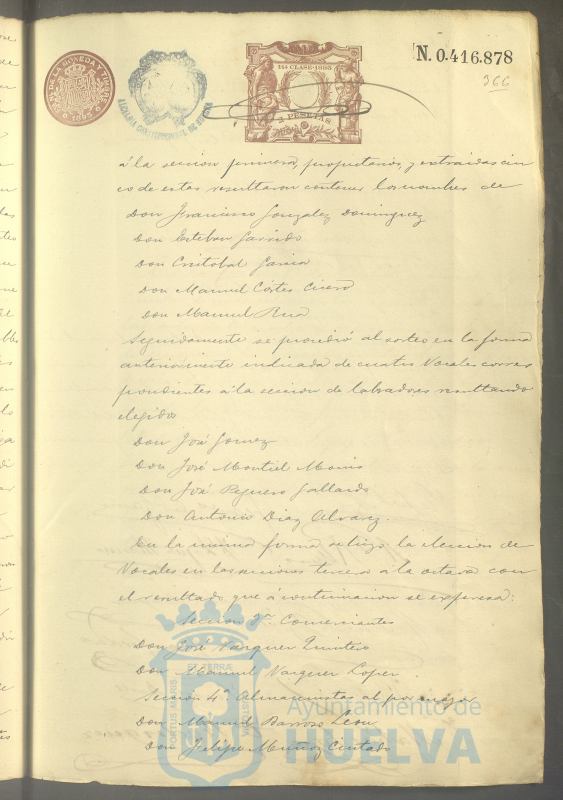 N. 0.416.878
366
11ª CLASE-1895
2 PESETAS
á la seccion primera, propietarios, y extraidas cin
co de estas resultaron contener los nombres de
Don Francisco Gonzalez Dominguez
Don Esteban Garrido
Don Cristobal Garcia
Don Manuel Cortes Cisero
Don Manuel Rua
Seguidamente se procedió al sorteo en la forma
anteriormente indicada de cuatro Vocales corres
pondientes á la seccion de labradores resultando
elegidos
Don José Gomez
Don José Montiel
Don José Peguero Gallardo
Don Antonio Diaz Alvarez.
En la misma forma se hizo la eleccion de
Vocales en las secciones tercera á la octava con
el resultado que á continuacion se expresa:
Seccion 3ª Comerciantes
Don José Vazquez Quintero
Don Manuel Vazquez Lopez.
Seccion 4ª Almacenistas al por mayor
Don Manuel Barroso Leon
Don Felipe Muñoz Centado
PORTUS MARIS
ET TERRÆ
CUSTODIA
Ayuntamiento de
HUELVA